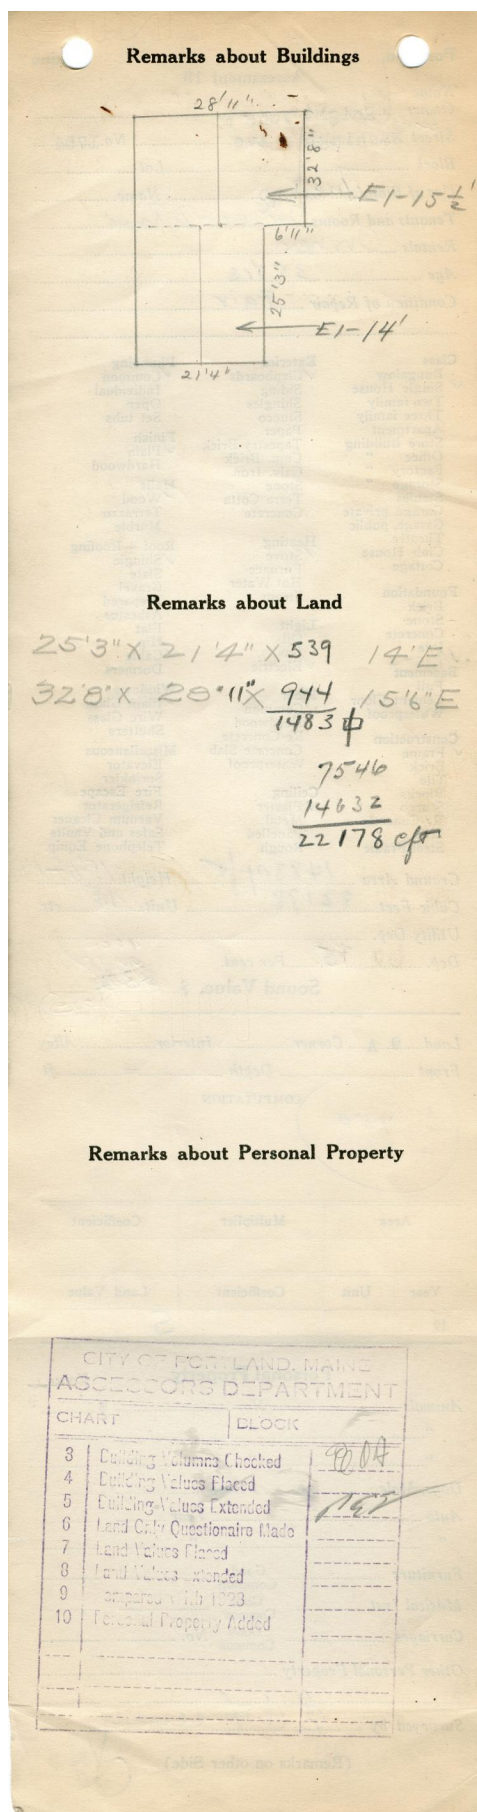 Remarks about Buildings
28'11"
32'8"
E1-15½'
6'11"
25'3"
E1-14'
21'4"
Remarks about Land
25'3" X 21'4" X 539 14'E
32'8" X 28'11" X 944 15'6"E
1483
7546
14632
22178 cft
Remarks about Personal Property
CITY OF PORTLAND, MAINE
ASSESSORS DEPARTMENT
CHART BLOCK
3 Building Volumns Checked
4 Building Values Placed
5 Building Values Extended
6 Land Only Questionaire Made
7 Land Values Placed
8 Land Values Extended
9 Compared With 1923
10 Personal Property Added